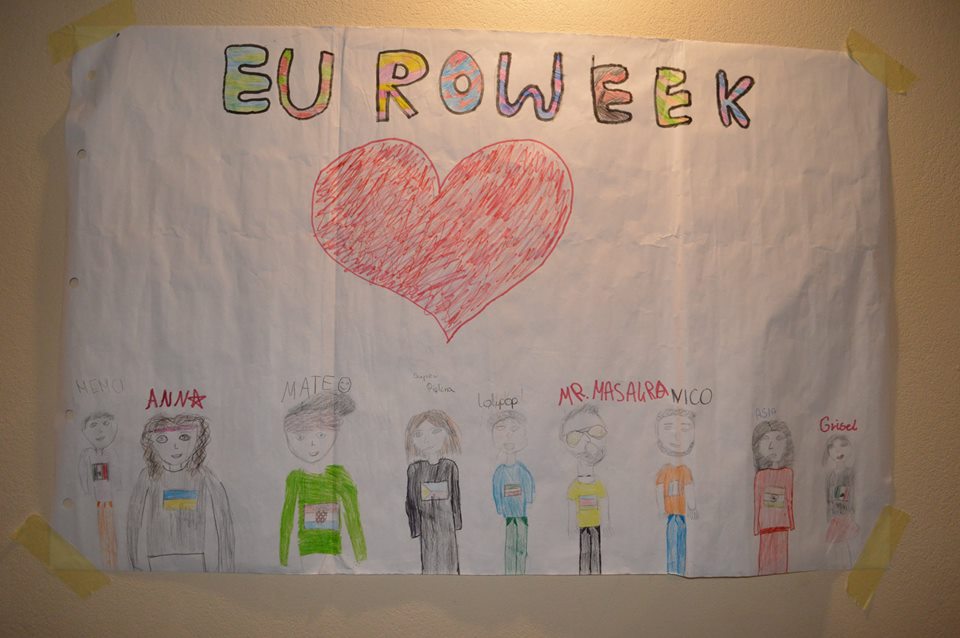 EUROWEEK
MEMO
ANNA
MATEO
Lollypop!
MR. MASALRA
NICO
ASIA
Grisel